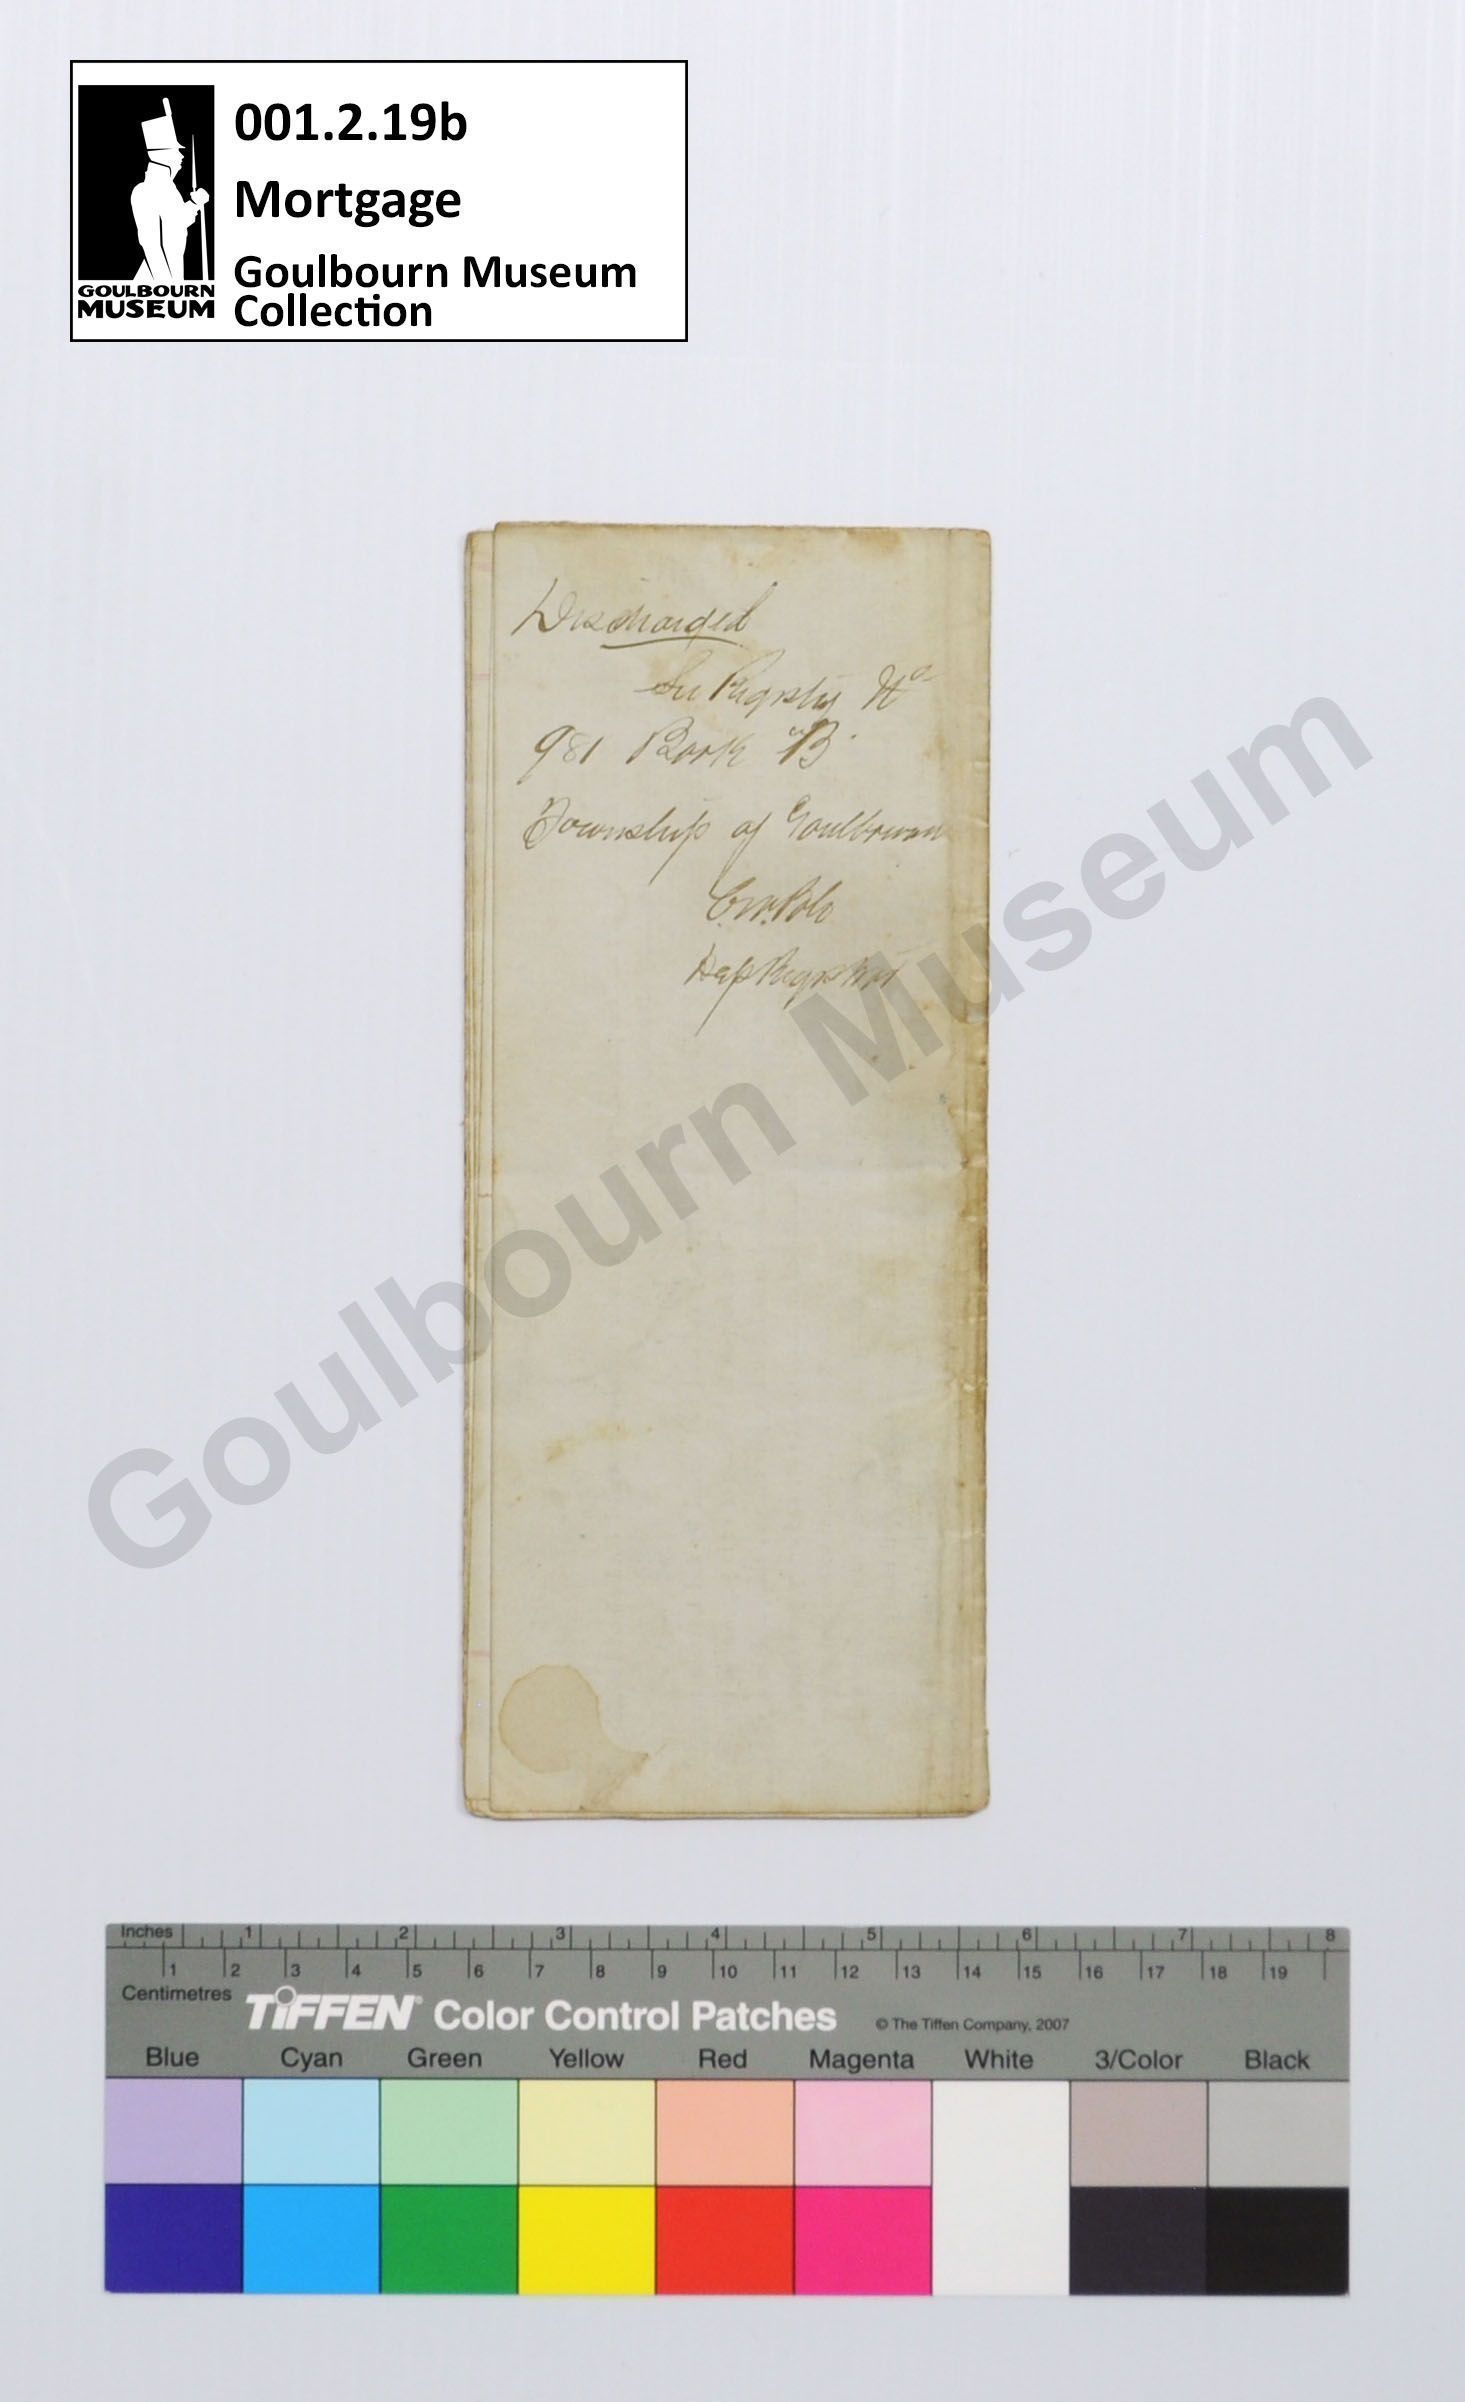 001.2.19b
Mortgage
Goulbourn Museum
Collection
GOULBOURN
MUSEUM
Discharged
See Registry No
981 Book "B"
Township of Goulbourn
Dep Registrar
Goulbourn Museum
Inches 1 2 3 4 5 6 7 8
1 2 3 4 5 6 7 8 9 10 11 12 13 14 15 16 17 18 19
Centimetres
TIFFEN® Color Control Patches © The Tiffen Company, 2007
Blue Cyan Green Yellow Red Magenta White 3/Color Black